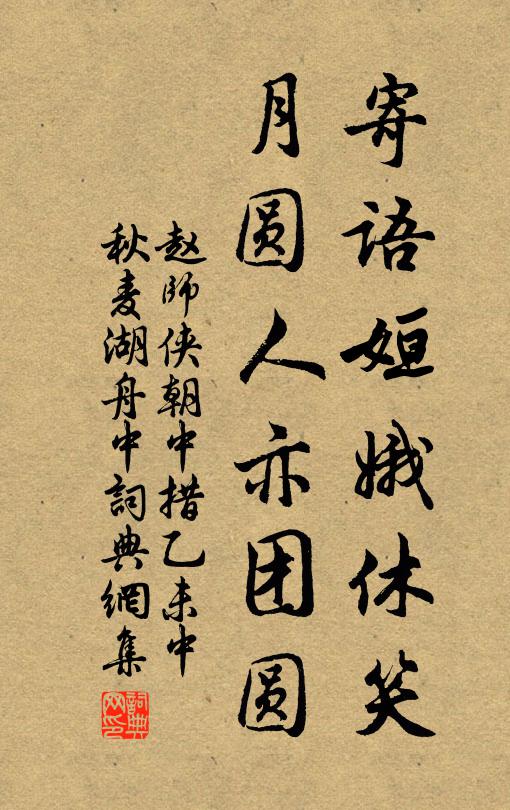 寄语姮娥休笑
月圆人亦团圆
赵师侠朝中措乙未中
秋麦湖舟中詞典網集
詞典
网印